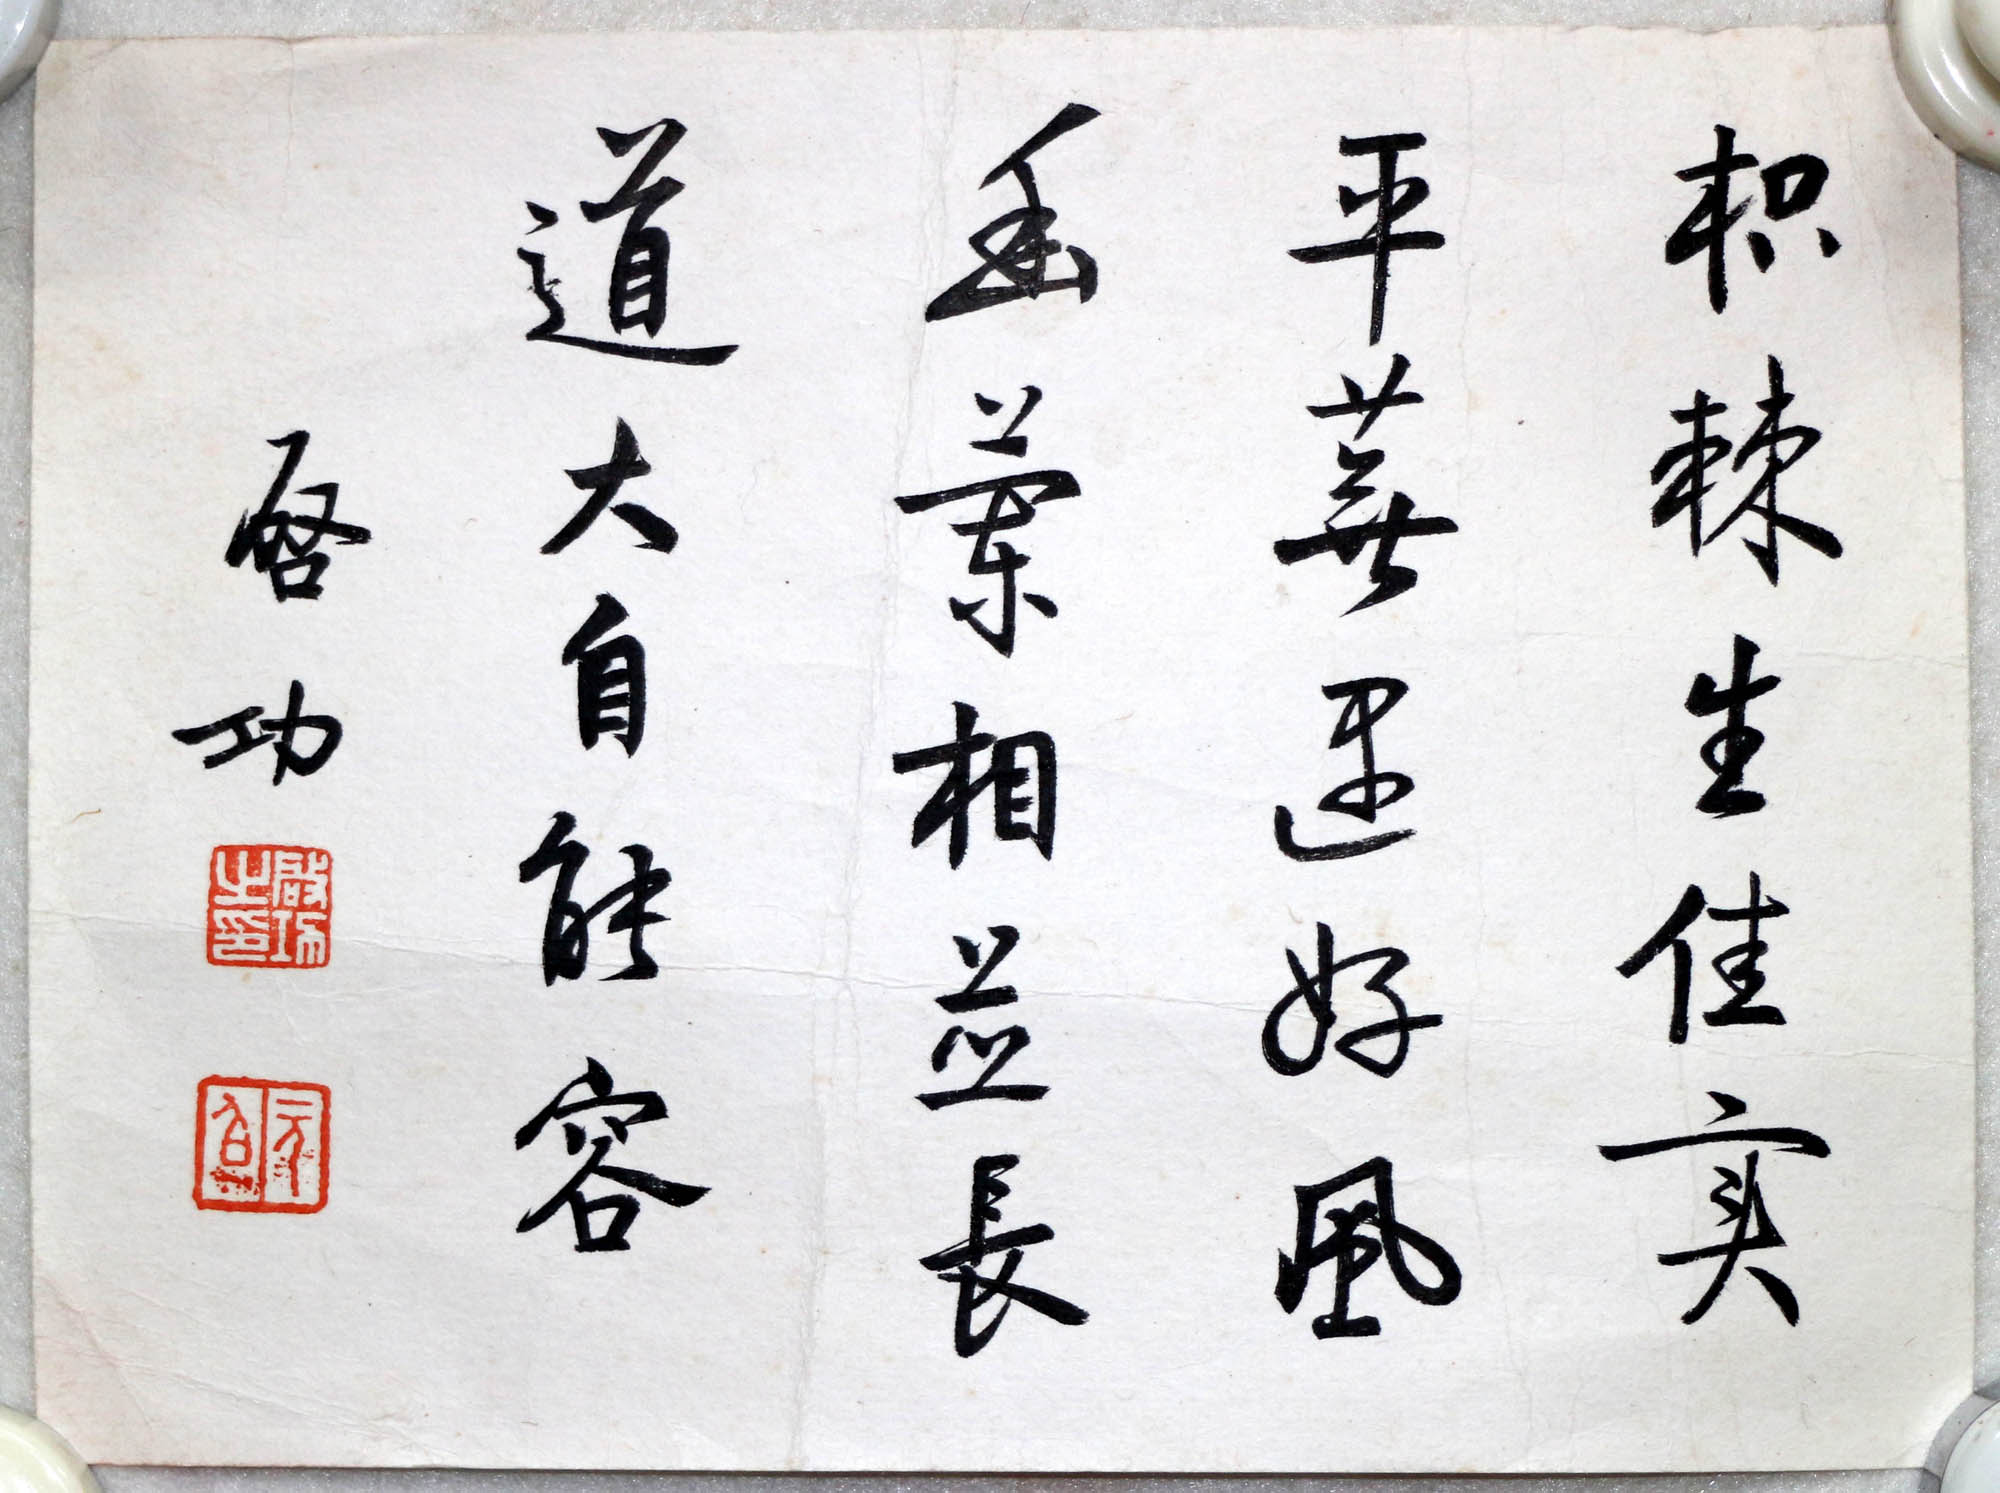 枳棘生佳實
平蕪好風
蘭相並長
道大自能容
啓功
啟功之印
元白